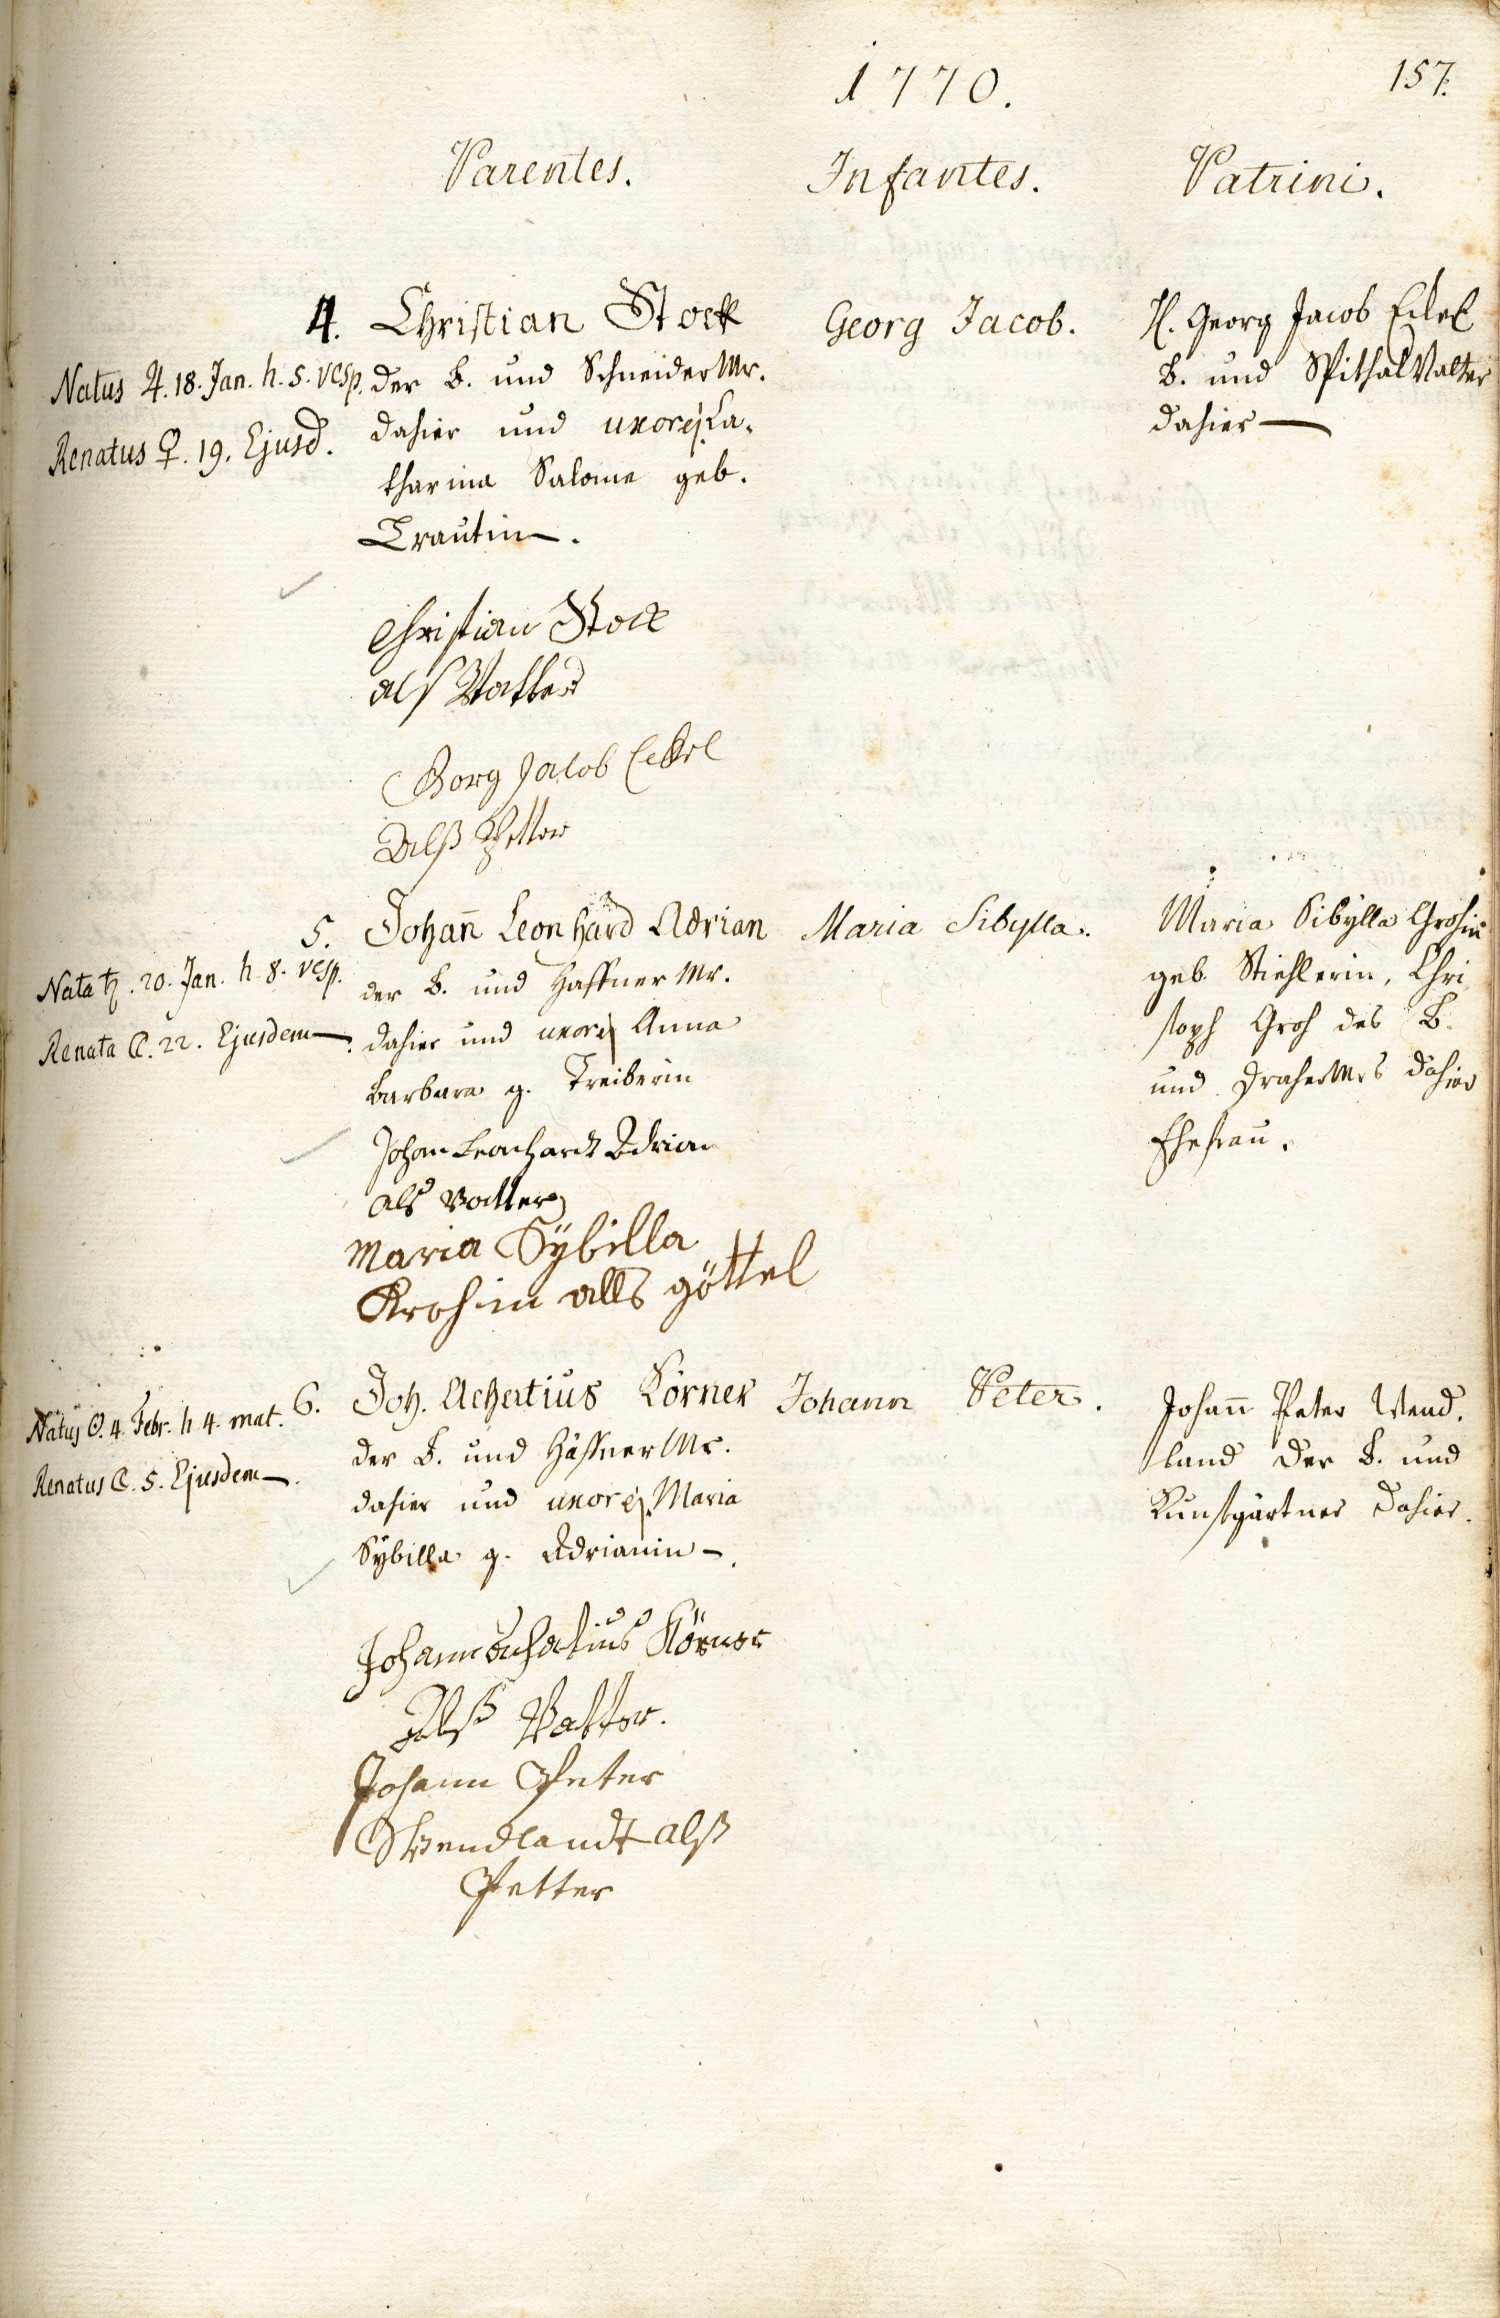 1770.
157.
Parentes.
Infantes.
Patrini.
4. Christian Stock
Natus ♃. 18. Jan. h. 5. vesp.
Renatus ♀. 19. Ejusd.
der B. und Schneider Mr.
dahier und uxor ej. Ca-
tharina Salome geb.
Trautin.
Georg Jacob.
H. Georg Jacob Eckel
B. und Spithal Vatter
dahier
Christian Stock
als Vatter
Georg Jacob Eckel
Alß Petter
5. Johann̄ Leonhard Adrian
Nata ♄. 20. Jan. h. 8. vesp.
Renata ☾. 22. Ejusdem.
der B. und Haffner Mr.
dahier und uxor ej. Anna
Barbara g. Treiberin
Maria Sibylla.
Maria Sibylla Grohin
geb. Stiehlerin, Chri
stoph Groh des B.
und Dreher Mrs dahier
Ehefrau.
Johan Leonhardt Adrian
als Vatter
Maria Sÿbilla
Krohin alls göttel
6. Joh. Achatius Körner
Natus ☉. 4. Febr. h. 4. mat.
Renatus ☾. 5. Ejusdem.
der B. und Häffner Mr.
dahier und uxor ej. Maria
Sÿbilla g. Adrianin.
Johann Peter.
Johann̄ Peter Wend.
land der B. und
Kunstgärtner dahier.
Johann Achatius Körner
Alß Vatter.
Johann Peter
Wendlandt alß
Petter